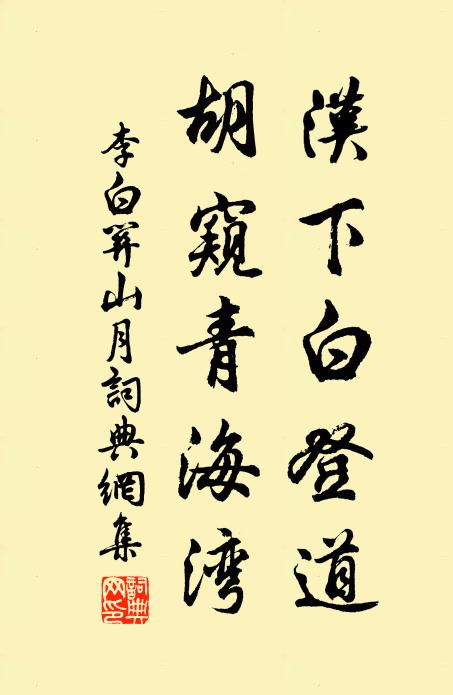 漢下白登道
胡窺青海湾
李白関山月詞典網集
詞典
网印